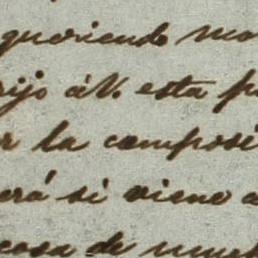 queriendo mo
rijo á V. esta p
r la composi
erá si viene a
casa de much